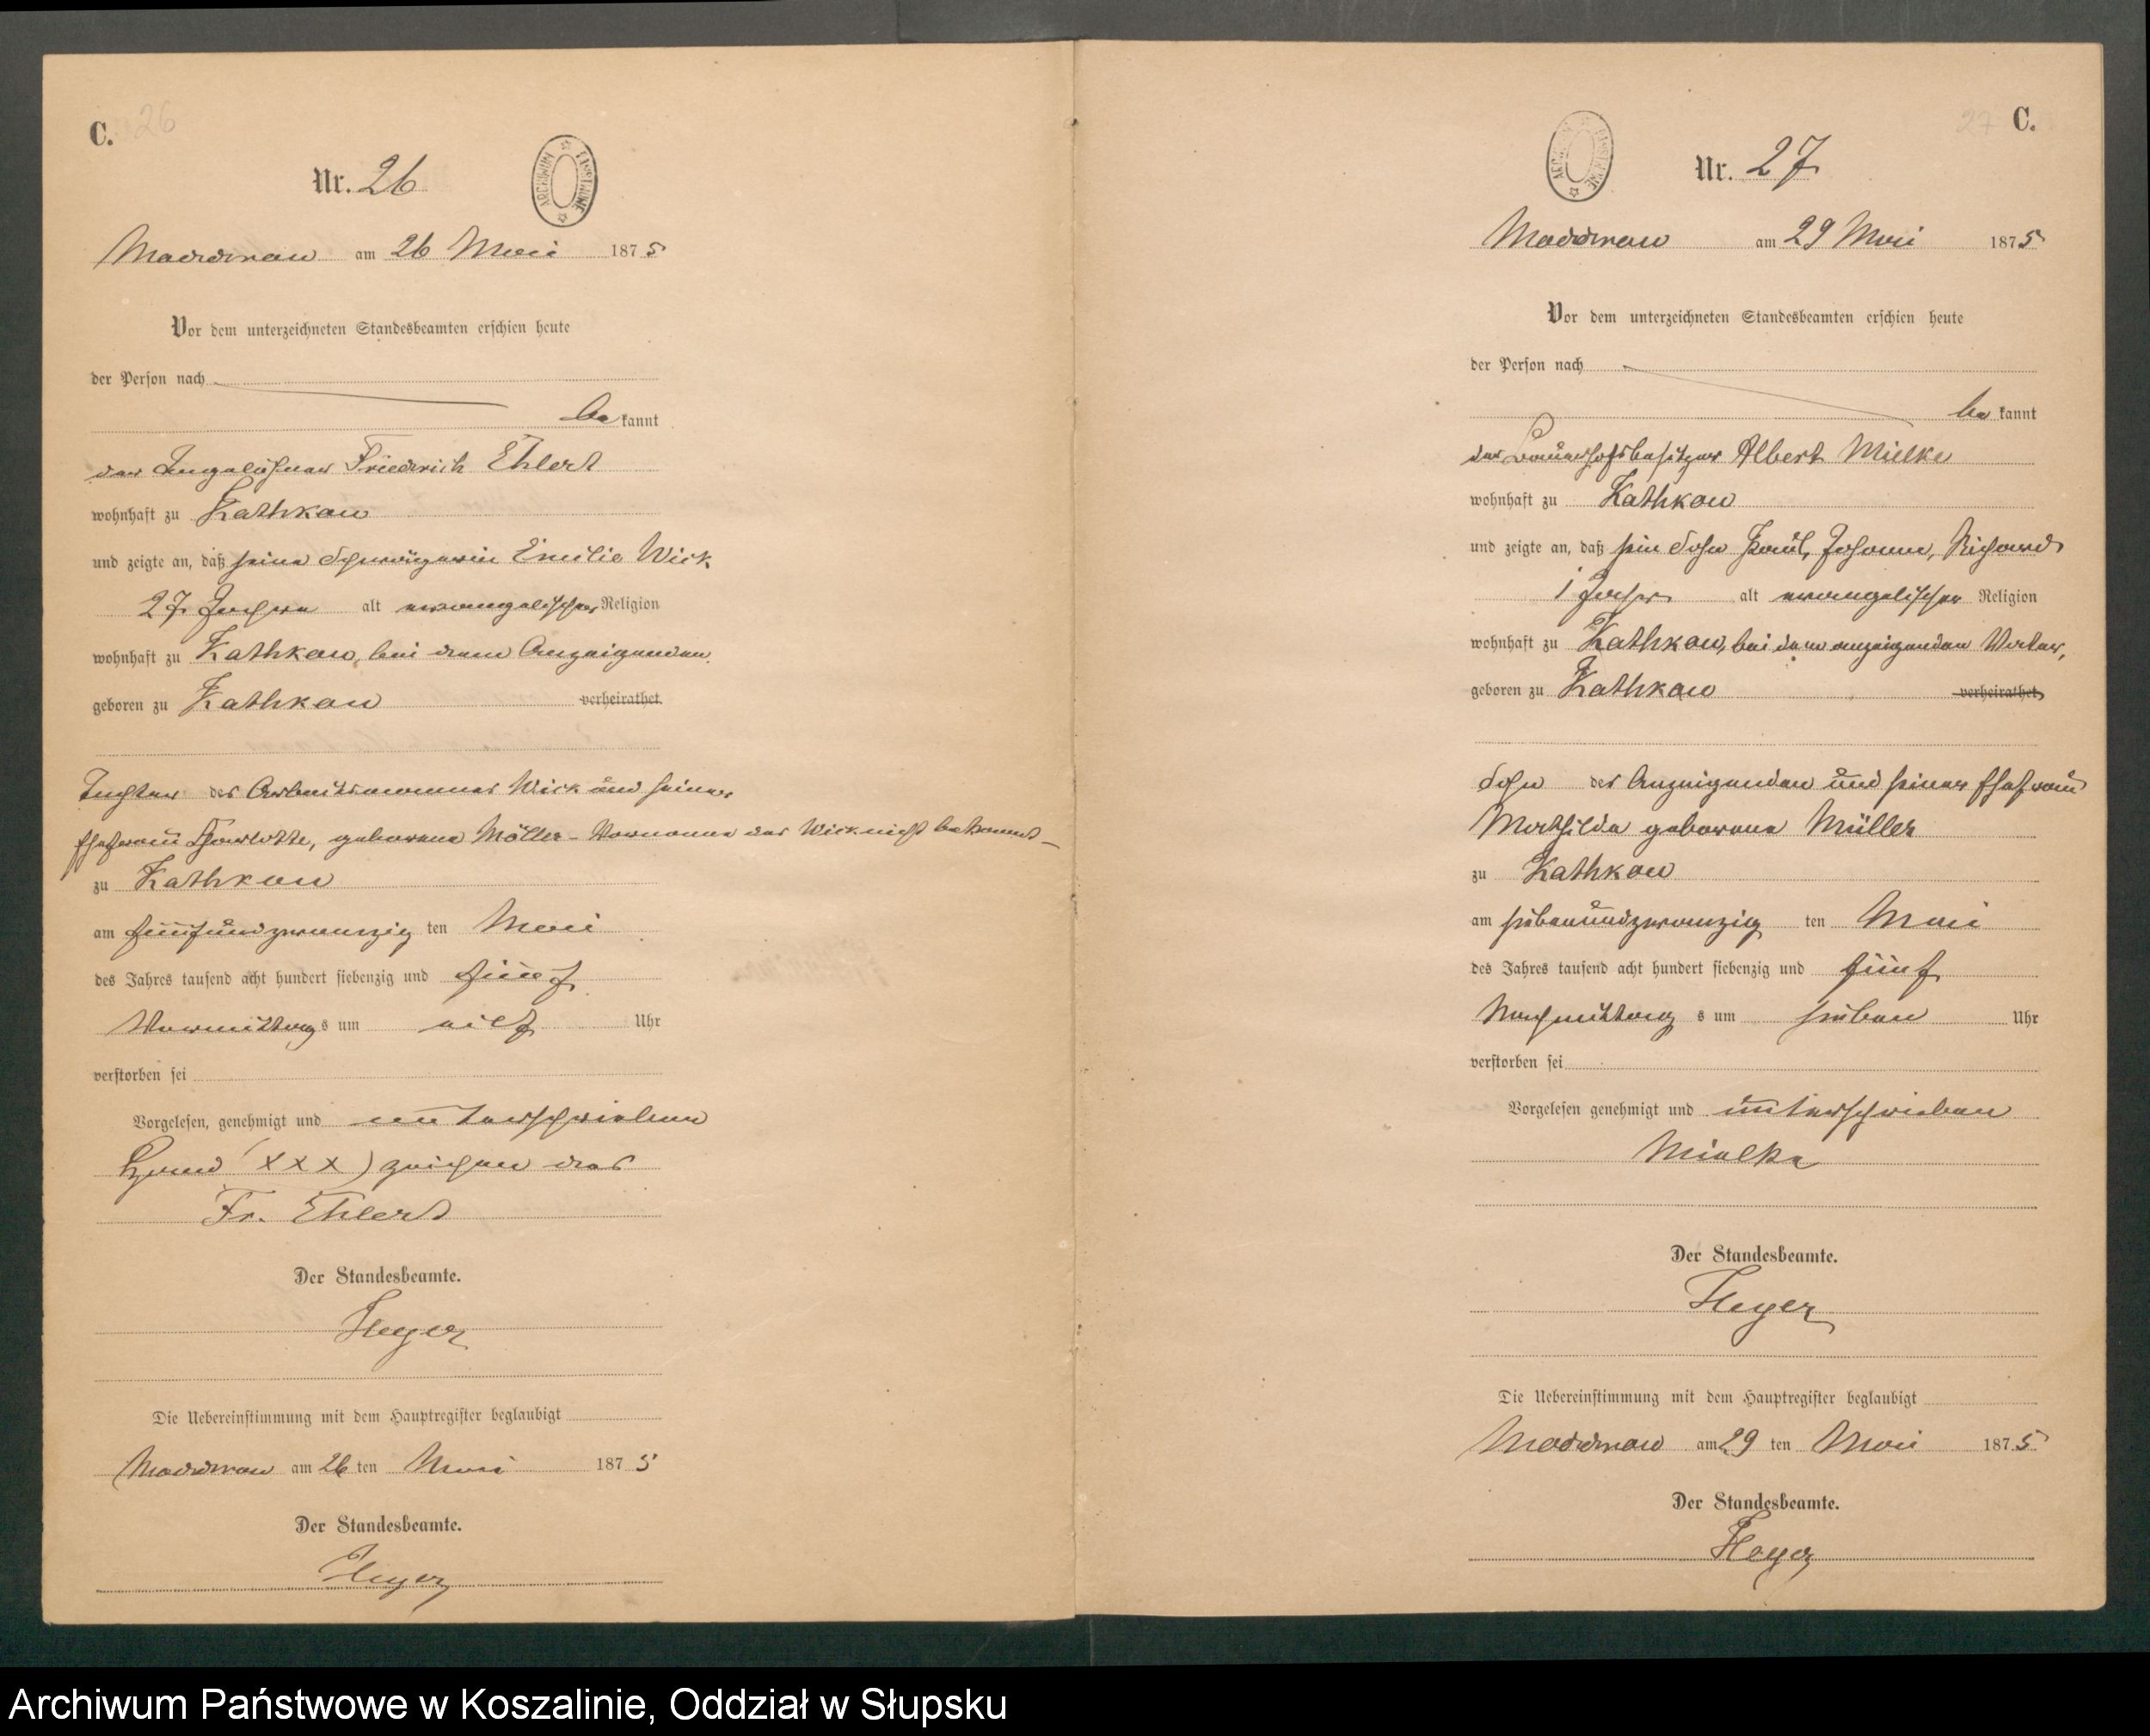 C. 26
Nr. 26
ARCHIWUM PAŃSTWOWE
Moddrow am 26 Mai 1875
Vor dem unterzeichneten Standesbeamten erschien heute
der Person nach
be kannt
der Tagelöhner Friedrich Ehlert
wohnhaft zu Kathkow
und zeigte an, daß seine Schwägerin Emilie Wick
27 Jahre alt evangelischer Religion
wohnhaft zu Kathkow, bei dem Anzeigenden
geboren zu Kathkow verheirathet
Tochter des Arbeitsmannes Wick und seiner
Ehefrau Charlotte, geborene Möller - Vorname des Wick nicht bekannt -
zu Kathkow
am fünfundzwanzig ten Mai
des Jahres tausend acht hundert siebenzig und fünf
Vormittags um elf Uhr
verstorben sei
Vorgelesen, genehmigt und unterschrieben
Hand (XXX) zeichen des
Fr. Ehlert
Der Standesbeamte.
Heyer
Die Uebereinstimmung mit dem Hauptregister beglaubigt
Moddrow am 26 ten Mai 1875
Der Standesbeamte.
Heyer
27 C.
ARCHIWUM PAŃSTWOWE
Nr. 27
Moddrow am 29 Mai 1875
Vor dem unterzeichneten Standesbeamten erschien heute
der Person nach
be kannt
der Bauerhofsbesitzer Albert Mielke
wohnhaft zu Kathkow
und zeigte an, daß sein Sohn Paul, Johann, Richard
1 Jahr alt evangelischer Religion
wohnhaft zu Kathkow, bei dem anzeigenden Vater,
geboren zu Kathkow verheirathet
Sohn des Anzeigenden und seiner Ehefrau
Mathilde geborene Müller
zu Kathkow
am siebenundzwanzig ten Mai
des Jahres tausend acht hundert siebenzig und fünf
Nachmittag s um sieben Uhr
verstorben sei
Vorgelesen genehmigt und unterschrieben
Mielke
Der Standesbeamte.
Heyer
Die Uebereinstimmung mit dem Hauptregister beglaubigt
Moddrow am 29 ten Mai 1875
Der Standesbeamte.
Heyer
Archiwum Państwowe w Koszalinie, Oddział w Słupsku